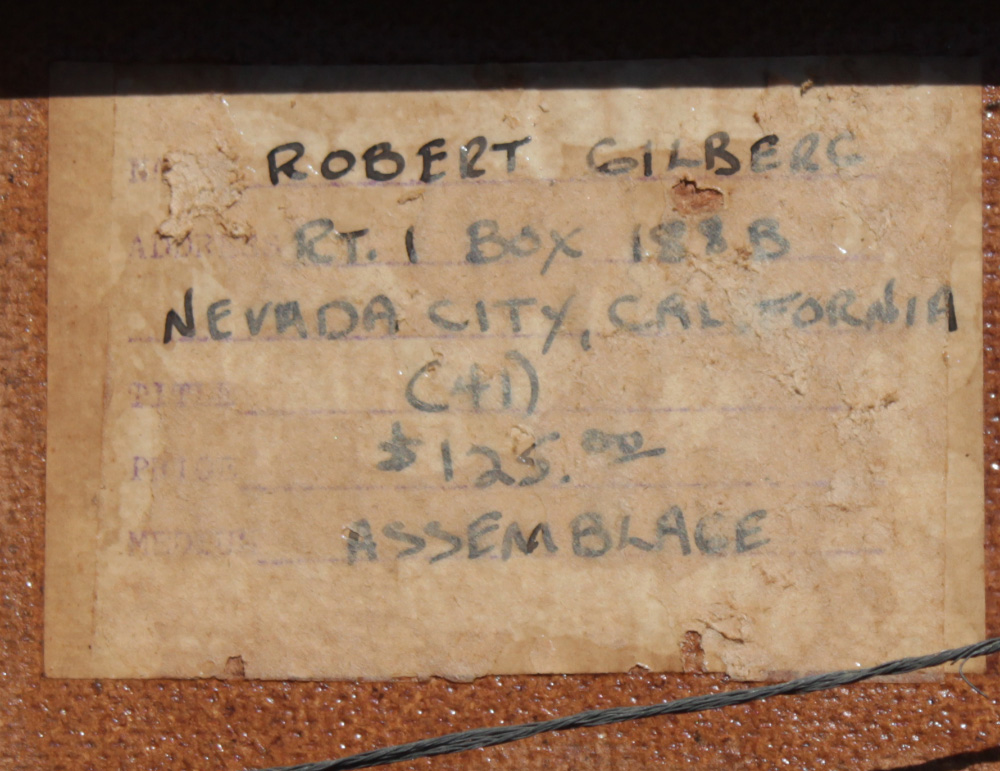 ROBERT GILBERG
ADDRESS RT. 1 BOX 188 B
NEVADA CITY, CALIFORNIA
TITLE (41)
PRICE $125.00
MEDIUM ASSEMBLAGE